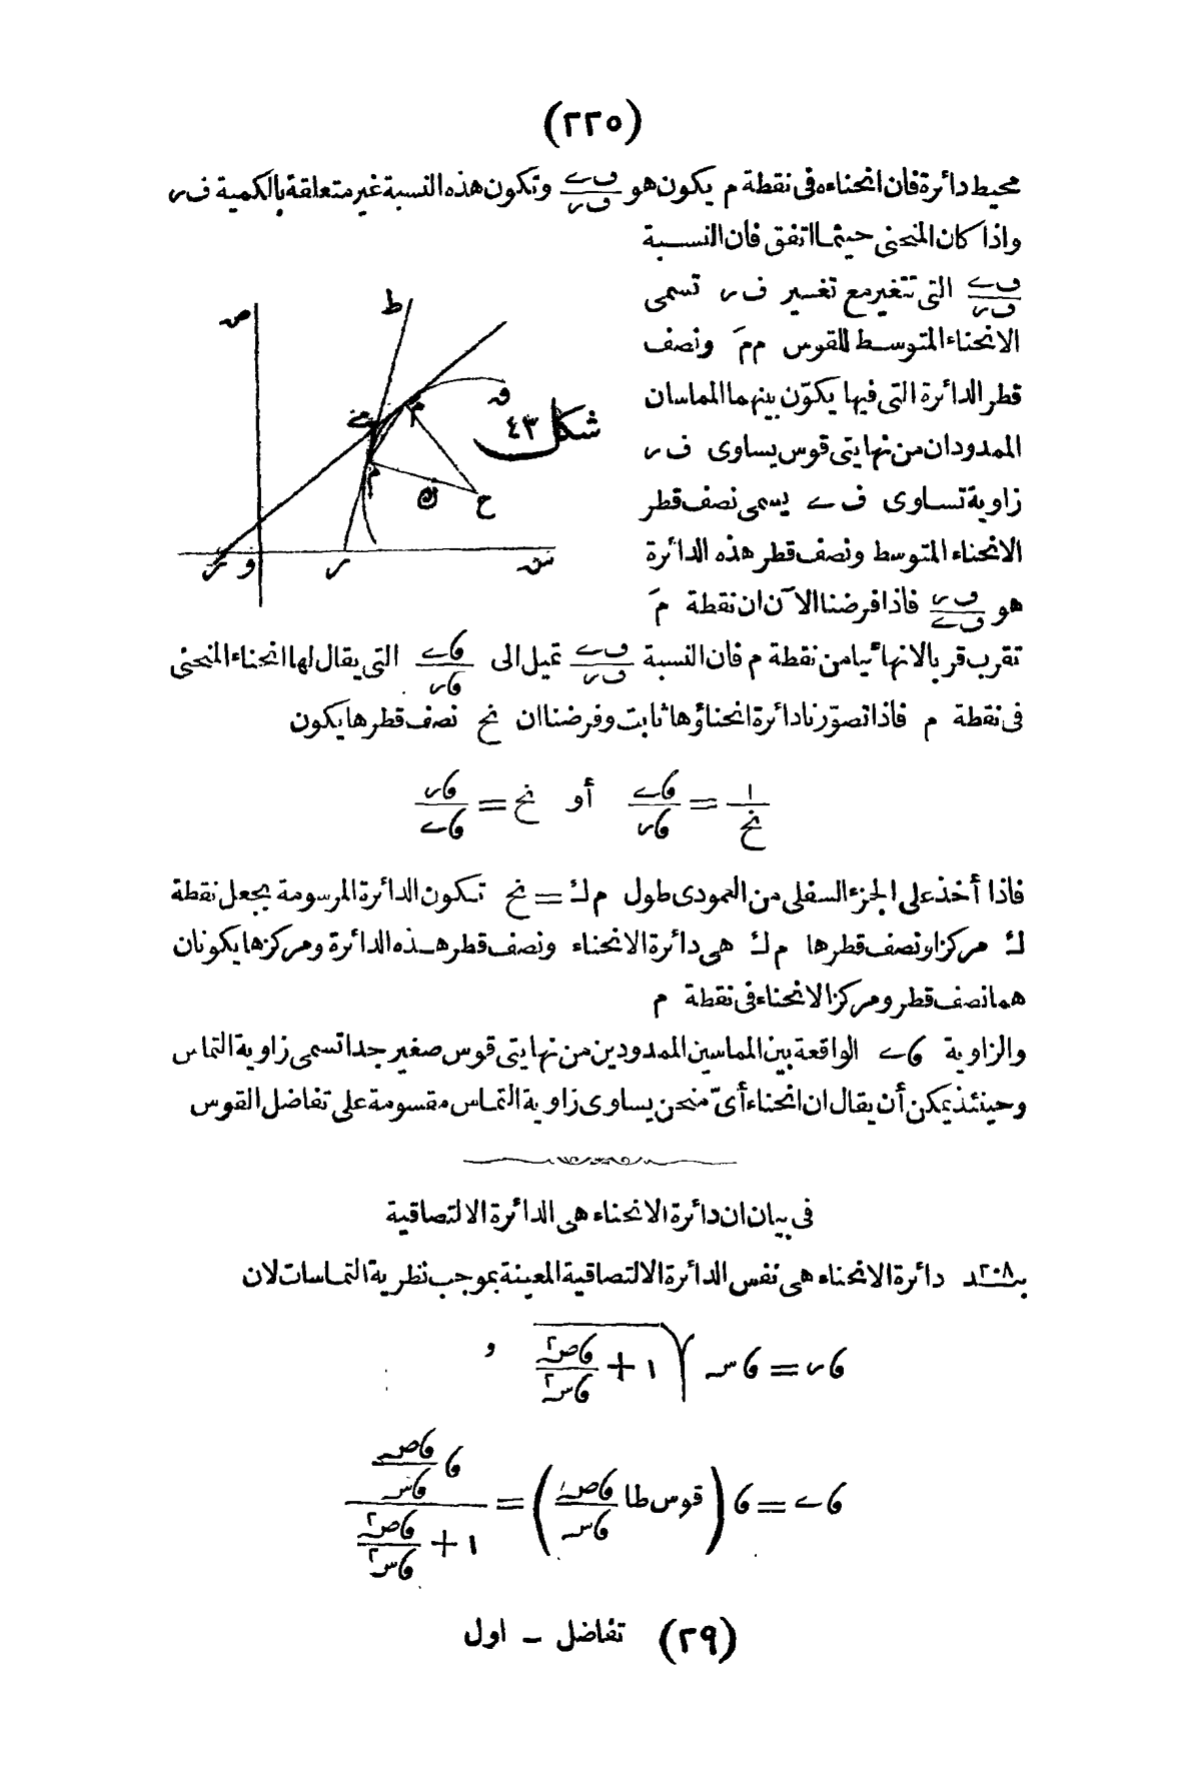 (٢٢٥)
محيط دائرة فان انحناءه فى نقطة م يكون هو ف ے / ف ر وتكون هذه النسبة غير متعلقة بالكمية ف ر
واذا كان المنحنى حيثما اتفق فان النسبة
ف ے / ف ر التى تتغير مع تغسير ف ر تسمى
الانحناء المتوسط للقوس م مَ ونصف
قطر الدائرة التى فيها يكوّن بينهما المماسان
الممدودان من نهايتى قوس يساوى ف ر
زاوية تساوى ف ے يسمى نصف قطر
الانحناء المتوسط ونصف قطر هذه الدائرة
هو ف ر / ف ے فاذا فرضنا الآن ان نقطة مَ
ص
ط
م
شكل ٤٣
م
ح
ر
و
ر
س
تقرب قربا لانهائيا من نقطة م فان النسبة ف ے / ف ر تميل الى ۶ ے / ۶ ر التى يقال لها انحناء المنحنى
فى نقطة م فاذا تصوّرنا دائرة انحناؤها ثابت وفرضنا ان نح نصف قطرها يكون
١ / نح = ۶ ے / ۶ ر أو نح = ۶ ر / ۶ ے
فاذا أخذ على الجزء السفلى من العمودى طول م ك = نح تكون الدائرة المرسومة بجعل نقطة
ك مركزا ونصف قطرها م ك هى دائرة الانحناء ونصف قطر هذه الدائرة ومركزها يكونان
هما نصف قطر ومركز الانحناء فى نقطة م
والزاوية ۶ ے الواقعة بين المماسين الممدودين من نهايتى قوس صغير جدا تسمى زاوية التماس
وحينئذ يمكن أن يقال ان انحناء أىّ منحن يساوى زاوية التماس مقسومة على تفاضل القوس
فى بيان ان دائرة الانحناء هى الدائرة الالتصاقية
بند ٢٠٨ دائرة الانحناء هى نفس الدائرة الالتصاقية المعينة بموجب نظرية التماسات لان
۶ ر = ۶ س √(١ + ۶ ص٢ / ۶ س٢) و
۶ ے = ۶ (قوس طا ۶ ص / ۶ س) = ۶ (۶ ص / ۶ س) / (١ + ۶ ص٢ / ۶ س٢)
(٢٩) تفاضل – اول